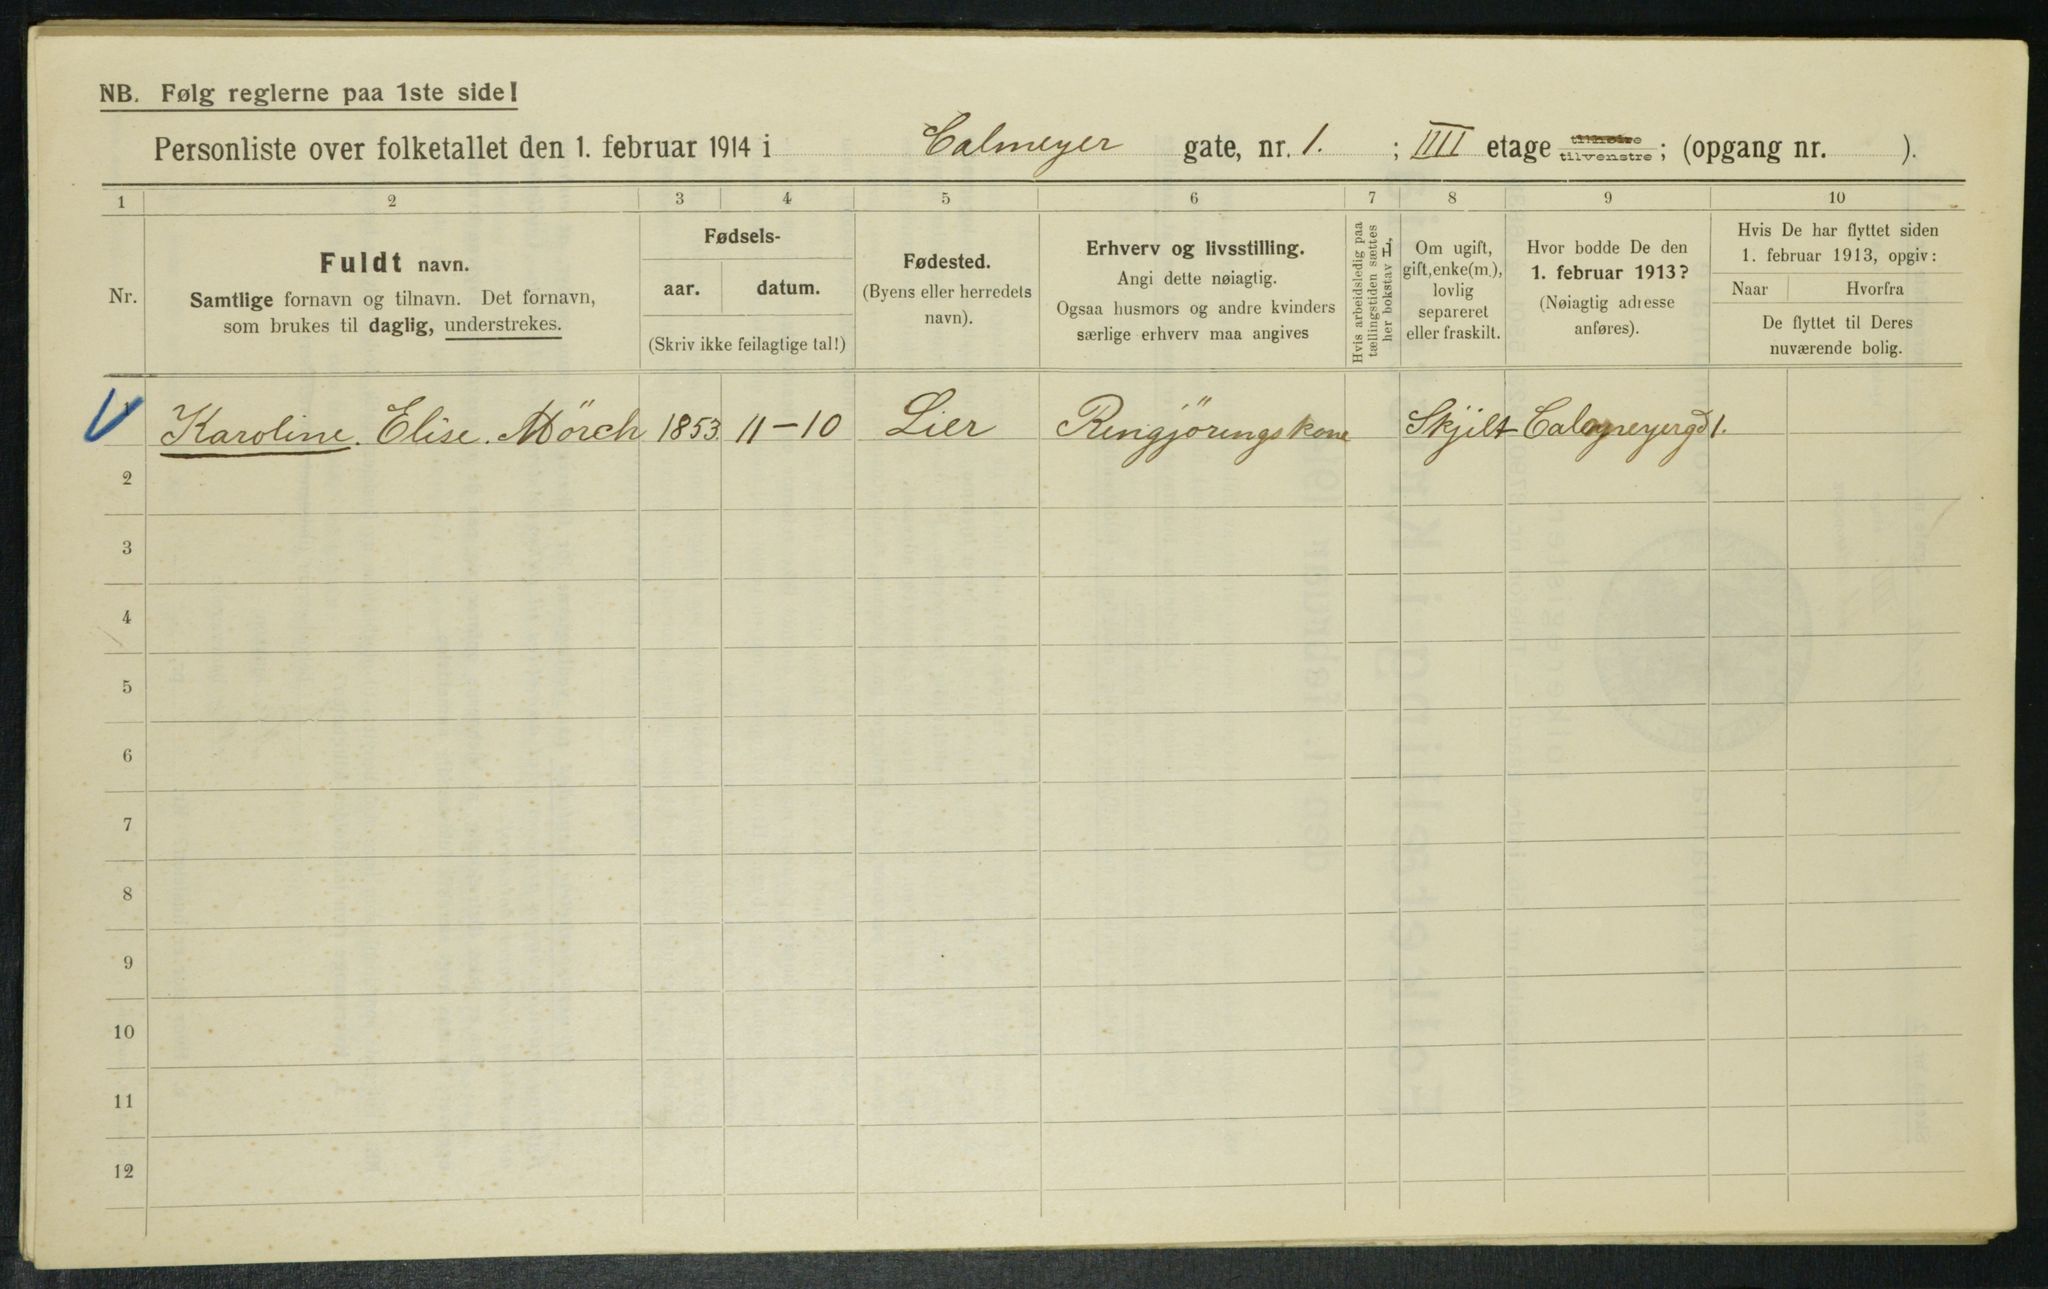 NB. Følg reglerne paa 1ste side!
Personliste over folketallet den 1. februar 1914 i Calmeyer gate, nr. 1. ; IIII etage tilhøire tilvenstre; (opgang nr. ).
1 2 3 4 5 6 7 8 9 10
Nr.
Fuldt navn.
Samtlige fornavn og tilnavn. Det fornavn,
som brukes til daglig, understrekes.
Fødsels-
aar. datum.
(Skriv ikke feilagtige tal!)
Fødested.
(Byens eller herredets
navn).
Erhverv og livsstilling.
Angi dette nøiagtig.
Ogsaa husmors og andre kvinders
særlige erhverv maa angives
Hvis arbeidsledig paa
tællingstiden sættes
her bokstav L.
Om ugift,
gift, enke(m.),
lovlig
separeret
eller fraskilt.
Hvor bodde De den
1. februar 1913?
(Nøiagtig adresse
anføres).
Hvis De har flyttet siden
1. februar 1913, opgiv:
Naar Hvorfra
De flyttet til Deres
nuværende bolig.
Karoline. Elise. Mörch 1853 11-10 Lier Rengjöringskone Skjilt Calmeyergd 1.
2
3
4
5
6
7
8
9
10
11
12